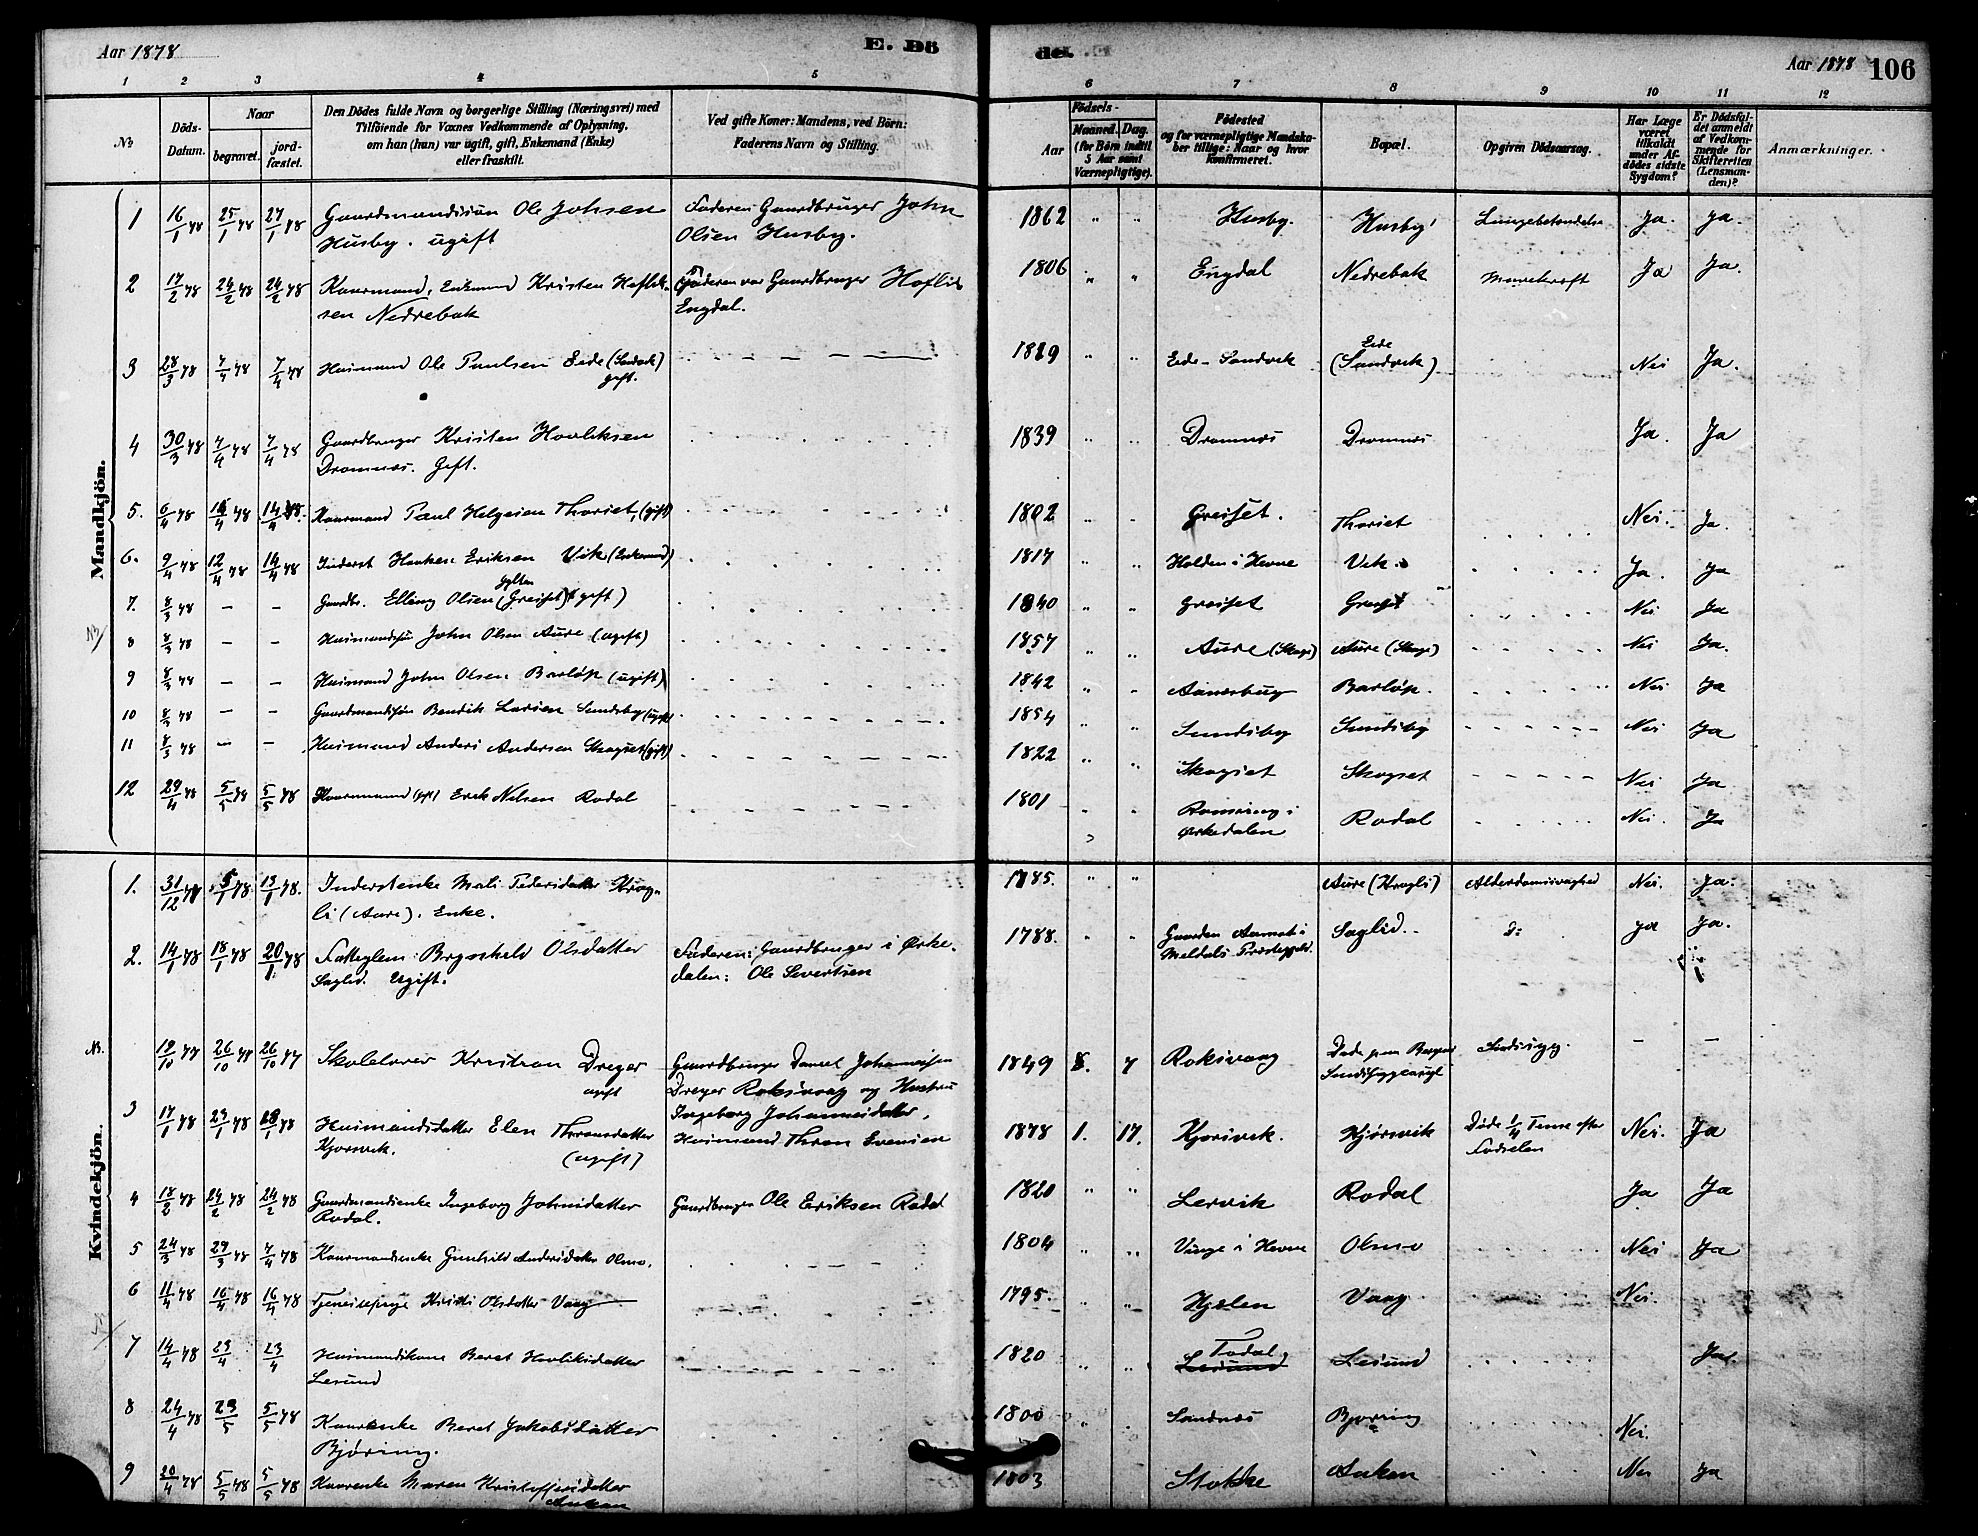 Aar 1878
E. Dö
de.
Aar 1878 106
1 2 3 4 5 6 7 8 9 10 11 12
No
Döds-
Datum.
Naar
begravet.
jord-
fæstet.
Den Dödes fulde Navn og borgerlige Stilling (Næringsvei) med
Tilföiende for Voxnes Vedkommende af Oplysning,
om han (hun) var ugift, gift, Enkemand (Enke)
eller fraskilt.
Ved gifte Koner: Mandens, ved Börn:
Faderens Navn og Stilling.
Födsels-
Aar
Maaned.
Dag.
(for Börn indtil
5 Aar samt
Værnepligtige).
Födested
og for værnepligtige Mandska-
ber tillige: Naar og hvor
konfirmeret.
Bopæl.
Opgiven Dödsaarsag.
Har Læge
været
tilkaldt
under Af-
dödes sidste
Sygdom?
Er Dödsfal-
det anmeldt
af Vedkom-
mende for
Skifteretten
(Lensman-
den)?
Anmærkninger.
Mandkjön.
1 16/1 78 25/1 78 27/1 78 Gaardmandssøn Ole Johsen Faderen Gaardbruger John 1862 " " Husby. Husby Lungebetændelse Ja. Ja.
Husby. ugift Olsen Husby.
2 17/2 78 24/2 78 24/2 78 Kaarmand, Enkemand Kristen Haflik- Faderen var Gaardbruger Haflik 1806 " " Engdal Nedrebak Ja Ja.
sen Nedrebak Engdal.
3 28/3 78 7/4 78 7/4 78 Husmand Ole Paulsen Eide (Sandvik) 1819 " " Eide - Sandvik Eide (Sandvik) Nei Ja.
gift.
4 30/3 78 7/4 78 7/4 78 Gaardbruger Kristen Havliksen 1839 " " Dromnes Dromnes Ja. Ja
Dromnes. Gift.
5. 6/4 78 14/4 78 14/4 78. Kaarmand Paul Helgesen Thorset, (gift) 1802 " " Greiset. Thorset Nei. Ja.
6. 9/4 78 12/4 78 14/4 78 Inderst Haaken Eriksen Vik (Enkemand) 1817 " " Holden i Hevne Vik. Ja. Ja
7. 8/3 78 — — Gaardbr. Elling Olsen (Greiset) (gift) 1840 " " Greiset Greiset Nei Ja
8 8/3 78 — — Husmandssøn John Olsen Aure (ugift) 1857 " " Aure (Skage) Aure (Skage) Nei Ja.
9 8/3 78 — — Husmand John Olsen Barløp (ugift) 1842 " " Barløp. Nei Ja
10 8/3 78 — — Gaardmandssøn Bendik Larsen Sundsby (ugift) 1854 " " Sundsby Sundsby Nei Ja
11 8/3 78 — — Husmand Anders Andersen Skogset (gift) 1822 " " Skogset Skogset Nei Ja
12 29/4 78 5/5 78 5/5 78 Kaarmand (gift) Erik Nilsen Rodal 1801 " " Rodal Nei. Ja
Ørkedalen
Kvindekjön.
1. 31/12 77 5/1 78 13/1 78. Inderstenke Mali Pedersdatter Krog- 1785. " " Aure (Krogli) Alderdomssvaghed Nei. Ja.
li (Aure). Enke.
2. 14/1 78 18/1 78 20/1 78 Fattiglem: Brynhild Olsdatter Faderen: Gaardbruger i Ørke- 1788. " " Gaarden Aamot i Saglid. do Ja Ja.
Saglid. Ugift. dalen: Ole Sivertsen Meldals Præstegjeld.
19/10 77 26/10 77 26/10 77 Skolelærer Kristian Dreyer Gaardbruger Daniel Johannesen 1849 8. 7 Roksvaag Døde paa Bergens Sindssyg. — —
ugift Dreyer Roksvaag og Hustru Sindssygeasyl
Ingeborg Johannesdatter,
3 17/1 78 23/1 78 28/1 78 Husmandsdatter Elen Thronsdatter Husmand Thron Evensen 1878 1. 17. Kjørsvik. Kjørsvik Døde 1/4 Time efter Nei. Ja
Kjørsvik. (ugift) Fødselen
4 18/2 78 24/2 78 24/2 78 Gaardmandsenke Ingeborg Johnsdatter Gaardbruger Ole Eriksen Rodal 1820 " " Lervik Rodal Ja Ja
Rodal.
5 24/3 78 29/3 78 7/4 78 Kaarmandsenke Gunhild Andersdatter Olmo. 1804 " " Vinge i Hevne Olmo Nei Ja
6 11/4 78 16/4 78 16/4 78 Tjenestepige Kristi Olsdatter Vaag 1795. " " Hjelen Vaag Nei.
7 14/4 78 23/4 23/4 Husmandskone Beret Havliksdatter 1820 " " Todal Lesund Lesund Ja
Lesund
8 24/4 78 29/5 5/5 78 Kaarenke Beret Jakobsdatter 1800 " " Sandnes Bjøring Nei.
Bjøring.
9 20/4 78 5/5 78 5/5 78 Kaarenke Maren Kristoffersdatter 1803 Stokke Anken Nei Ja
Anken